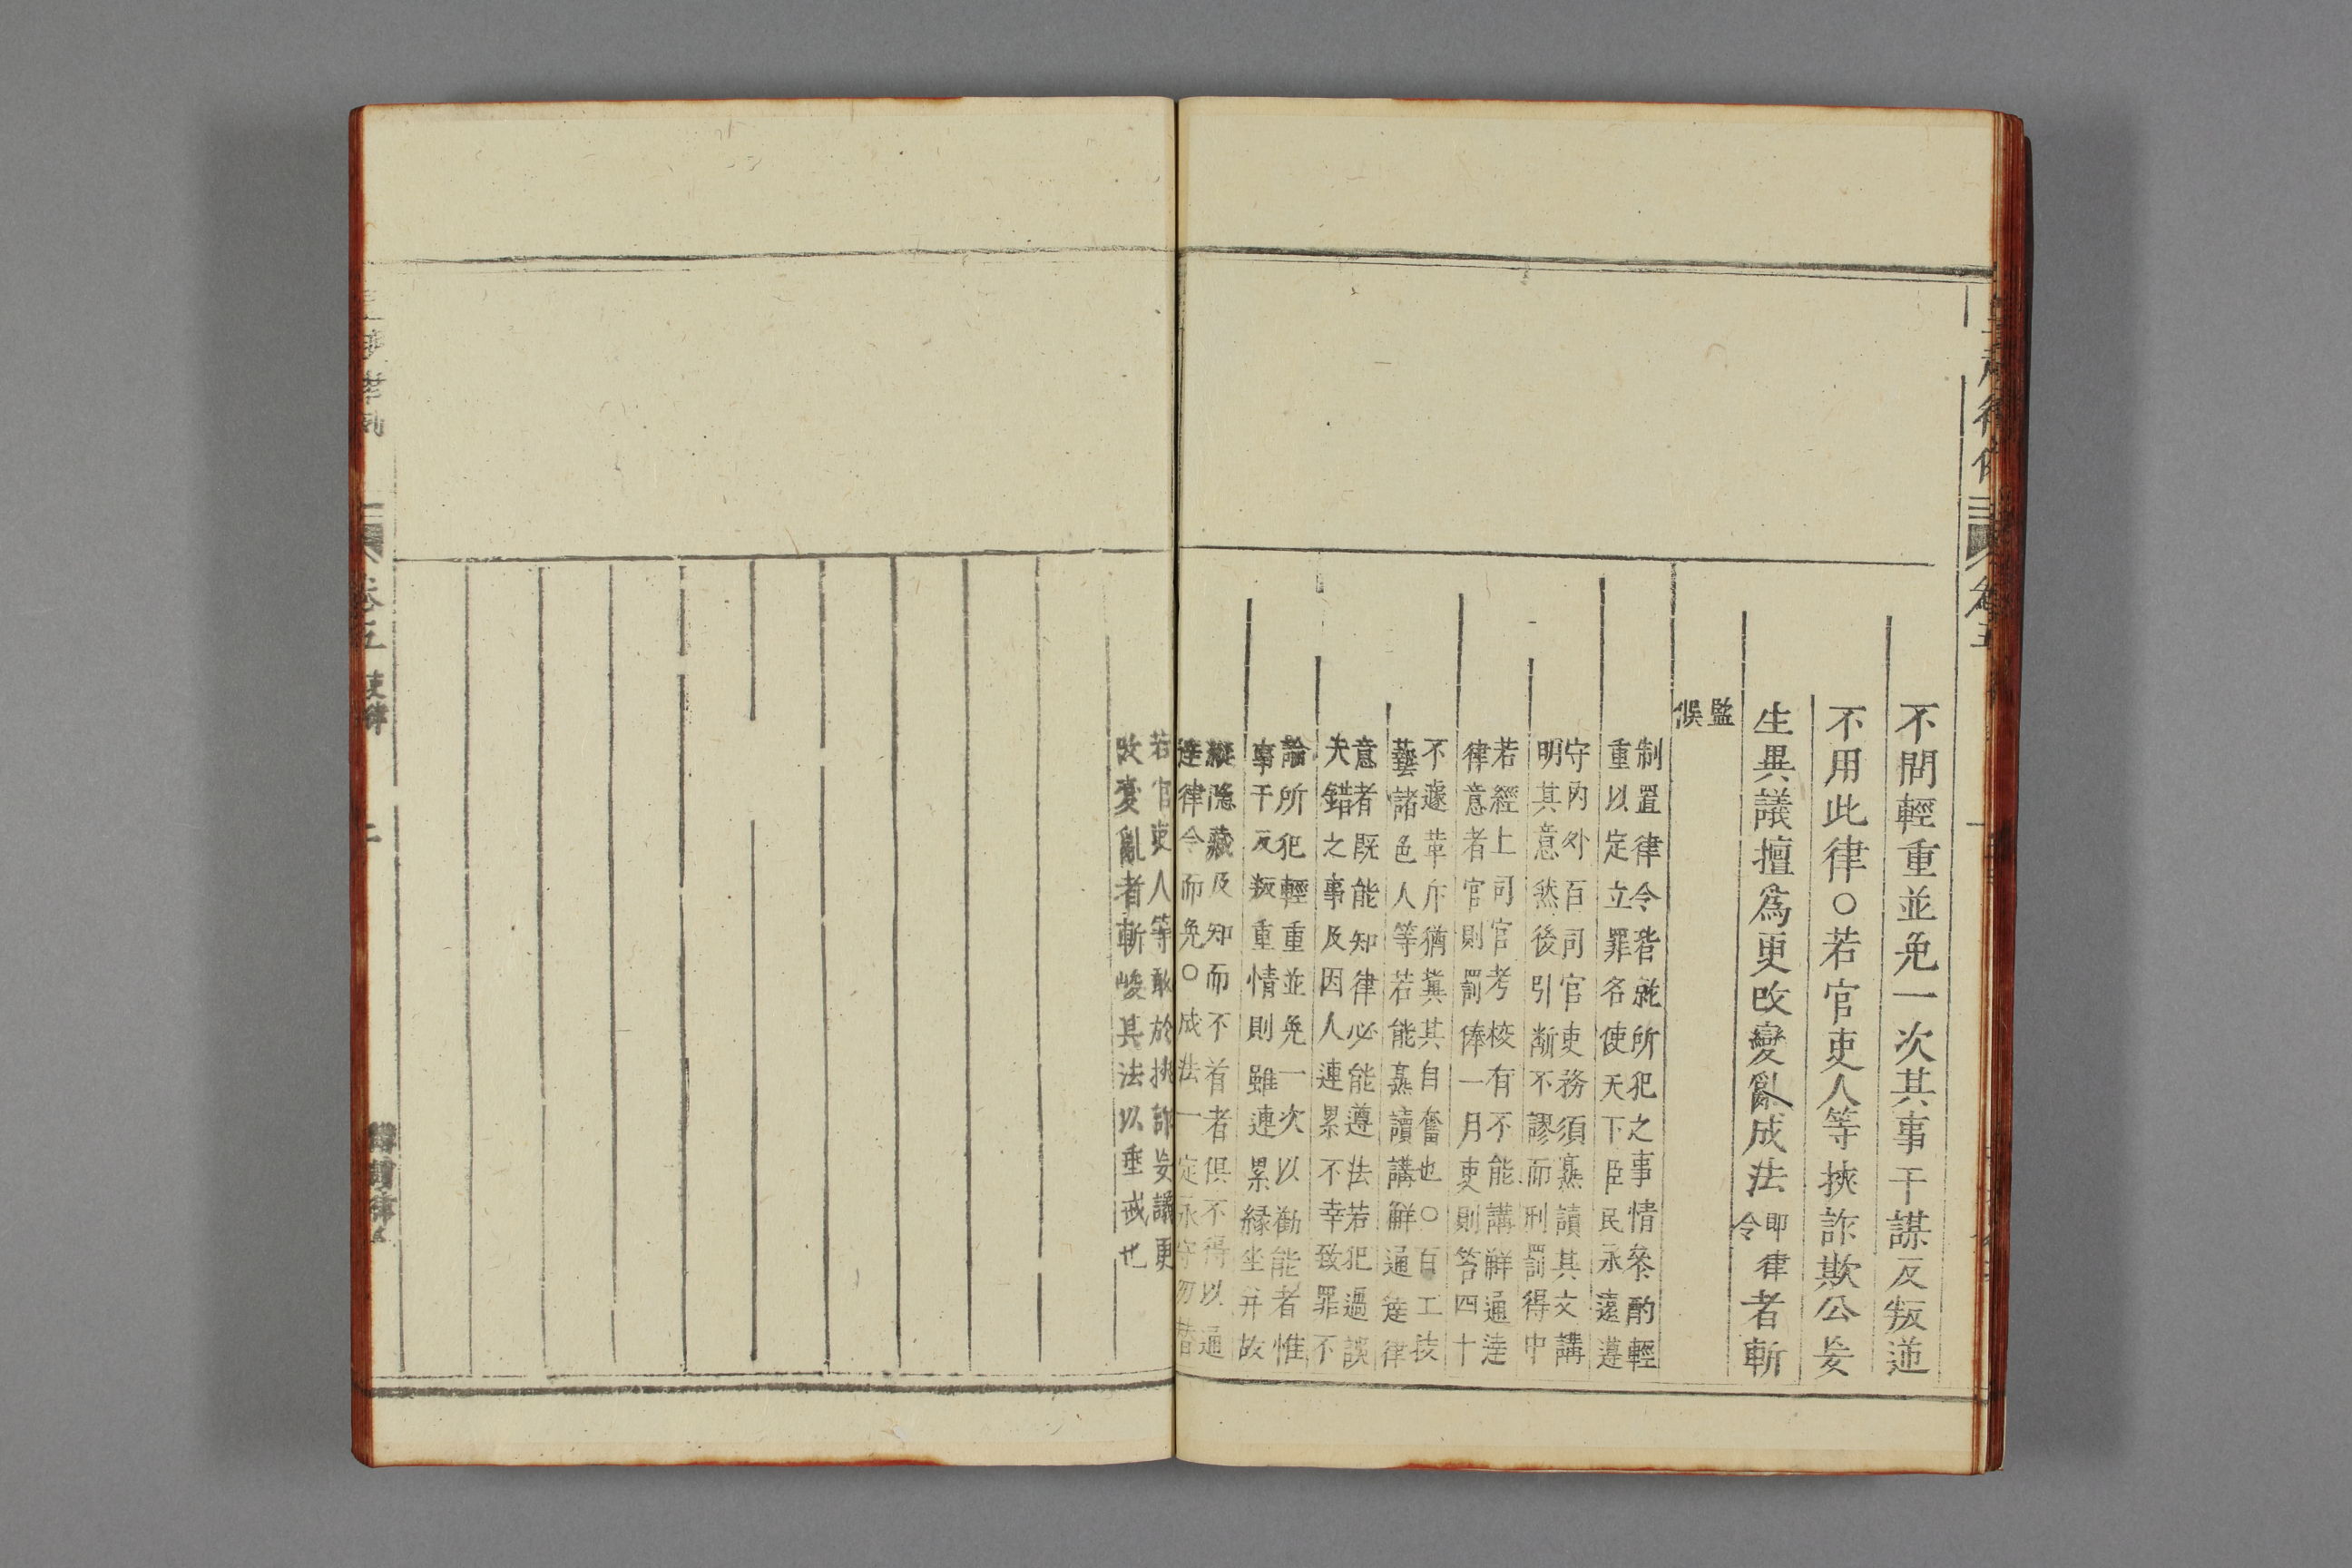 不問輕重並免一次其事干謀反叛逆
不用此律○若官吏人等挾詐欺公妄
生異議擅為更改變亂成法
即律
令
者斬
監
候
制置律令皆就所犯之事情叅酌輕
重以定立罪名使天下臣民永遠遵
守內外百司官吏務須熟讀其文講
明其意然後引斷不謬而刑罰得中
若經上司官考校有不能講解通達
律意者官則罰俸一月吏則笞四十
不遽革斥猶冀其自奮也○百工技
藝諸色人等若能熟讀講解通達律
意者既能知律必能遵法若犯過誤
失錯之事及因人連累不幸致罪不
論所犯輕重並免一次以勸能者惟
事干反叛重情則雖連累緣坐并故
縱隱藏及知而不首者俱不得以通
達律令而免○成法一定永守勿替
若官吏人等敢於挾詐妄議更
改變亂者斬峻其法以垂戒也
卷五
吏律
二